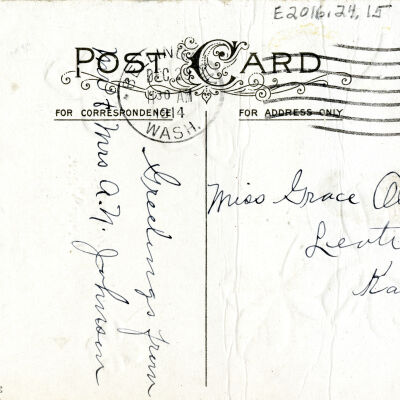 E2016.24.15
POST CARD
DEC 2
830 AM
1914
WASH.
FOR CORRESPONDENCE
FOR ADDRESS ONLY
Greetings from
Mrs A.N. Johnson
Miss Grace